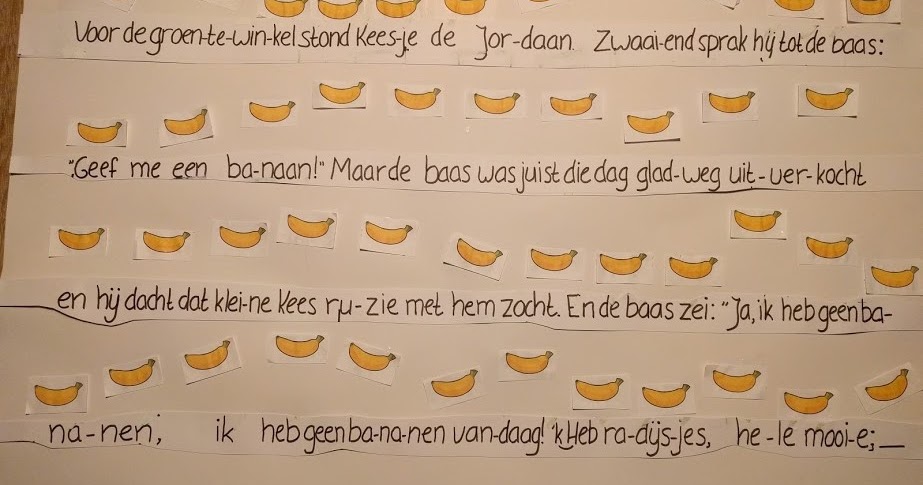 Voor de groen-te-win-kel stond Kees-je de Jor-daan. Zwaai-end sprak hij tot de baas:
"Geef me een ba-naan!" Maar de baas was juist die dag glad-weg uit-ver-kocht
en hij dacht dat klei-ne Kees ru-zie met hem zocht. En de baas zei: "Ja, ik heb geen ba-
na-nen; ik heb geen ba-na-nen van-daag! 'k Heb ra-dijs-jes, he-le mooi-e;_